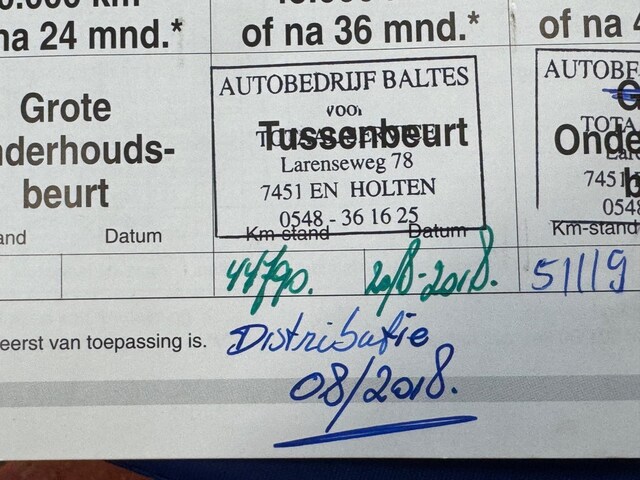 na 24 mnd.*
of na 36 mnd.*
of na 4
Grote
nderhouds-
beurt
AUTOBEDRIJF BALTES
voor
Tussenbeurt
Larenseweg 78
7451 EN HOLTEN
0548 - 36 16 25
Km-stand Datum
Datum
44790. 20/8-2018.
AUTOBE
TOTA
Onde
7451
0548
Km-stand
51119
eerst van toepassing is.
Distributie
08/2018.